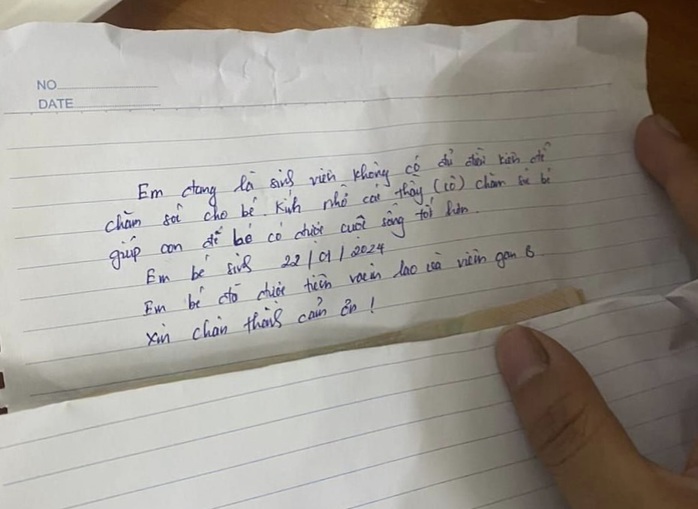 NO
DATE
Em đang là sinh viên không có đủ điều kiện để
chăm sóc cho bé. Kính nhờ các thầy (cô) chăm sóc bé
giúp con để bé có được cuộc sống tốt hơn.
Em bé sinh 22/01/2024
Em bé đã được tiêm vacin lao và viêm gan B.
xin chân thành cảm ơn!